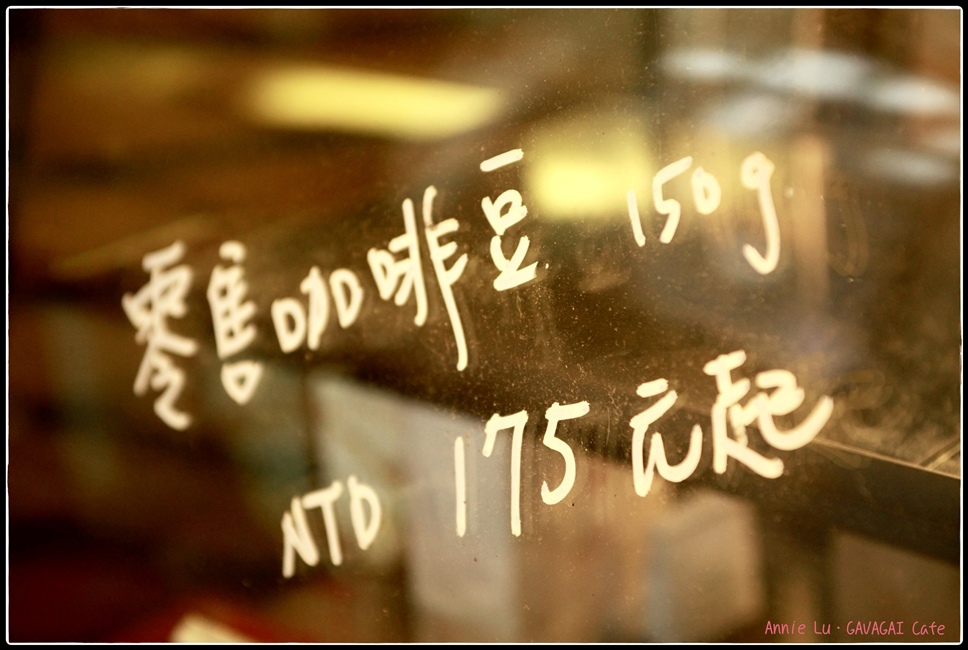 零售咖啡豆 150g
NTD 175 元起
Annie Lu · GAVAGAI Cafe